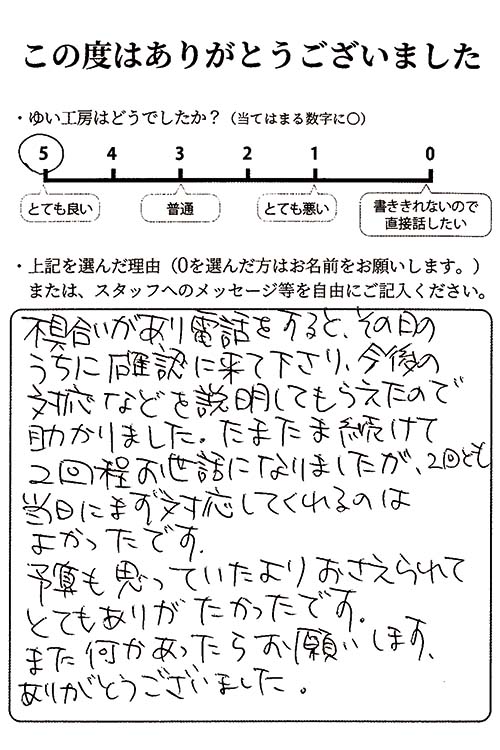 この度はありがとうございました
・ゆい工房はどうでしたか？（当てはまる数字に〇）
5 4 3 2 1 0
とても良い 普通 とても悪い 書ききれないので
直接話したい
・上記を選んだ理由（0を選んだ方はお名前をお願いします。）
または、スタッフへのメッセージ等を自由にご記入ください。
不具合いがあり電話をすると、その日の
うちに確認に来て下さり、今後の
対応などを説明してもらえたので
助かりました。たまたま続けて
2回程お世話になりましたが、2回とも
当日にまず対応してくれるのは
よかったです。
予算も思っていたよりおさえられて
とてもありがたかったです。
また何かあったらお願いします、
ありがとうございました。